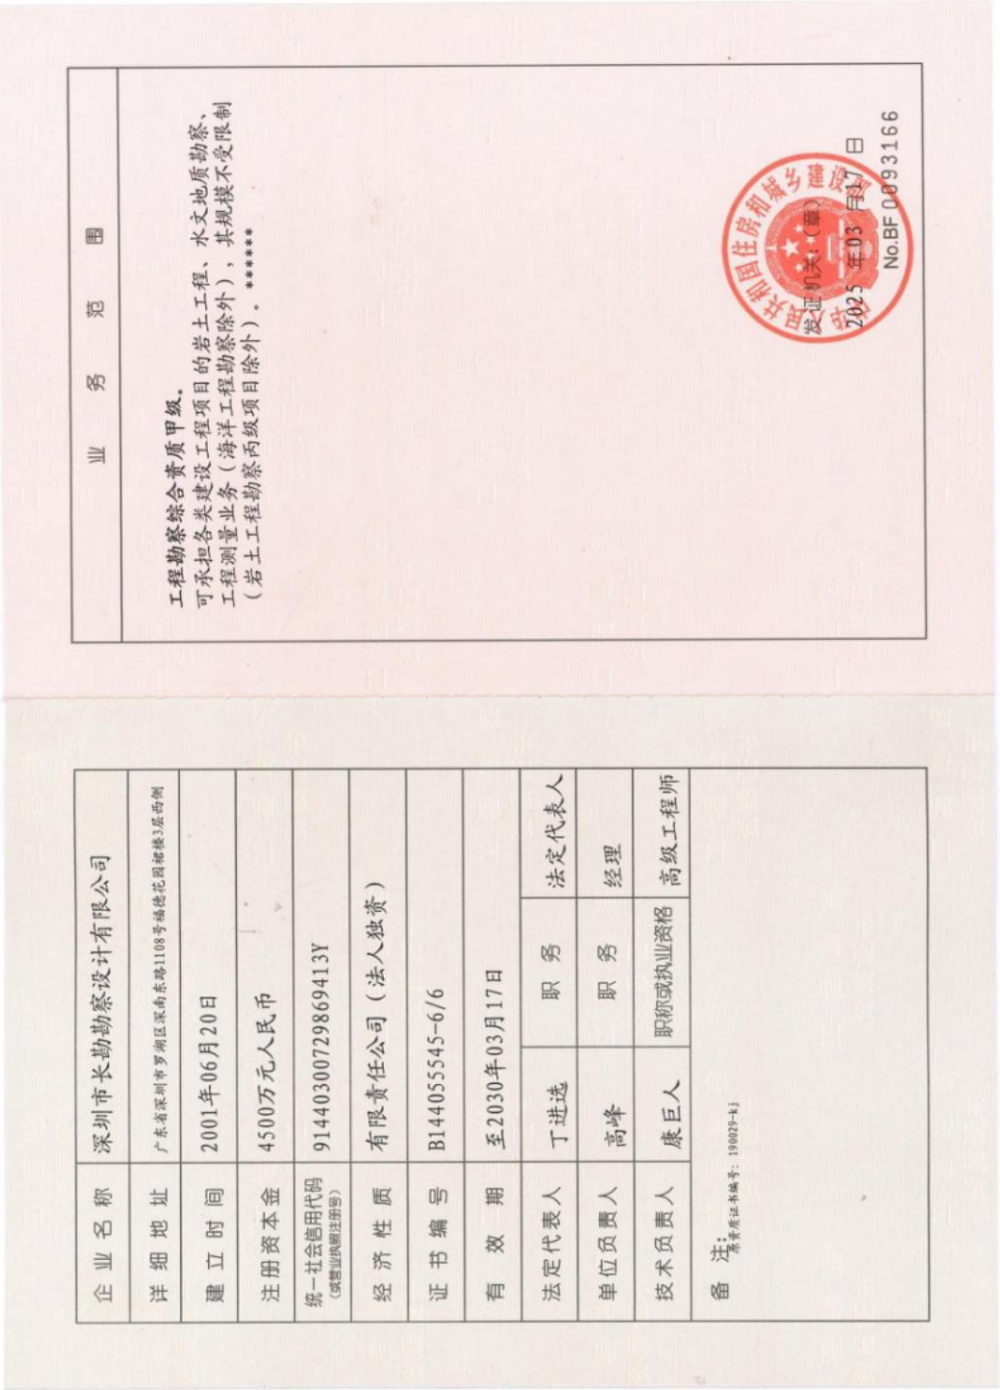 企业名称 深圳市长勘勘察设计有限公司
详细地址 广东省深圳市罗湖区深南东路1108号福德花园裙楼3层西侧
建立时间 2001年06月20日
注册资本金 4500万元人民币
统一社会信用代码 91440300729869413Y
（或营业执照注册号）
经济性质 有限责任公司（法人独资）
证书编号 B144055545-6/6
有效期 至2030年03月17日
法定代表人 丁进选 职务 法定代表人
单位负责人 高峰 职务 经理
技术负责人 康巨人 职称或执业资格 高级工程师
备注：
原资质证书编号：190029-kj
业务范围
工程勘察综合资质甲级。
可承担各类建设工程项目的岩土工程、水文地质勘察、
工程测量业务（海洋工程勘察除外），其规模不受限制
（岩土工程勘察丙级项目除外）。******
中华人民共和国住房和城乡建设部
发证机关：（章）
2025年03月17日
No.BF 0093166